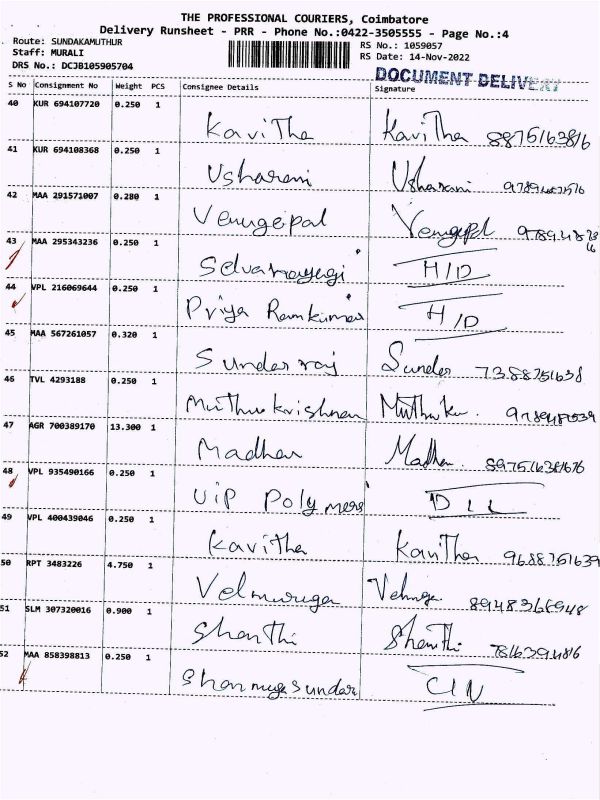 THE PROFESSIONAL COURIERS, Coimbatore
Delivery Runsheet - PRR - Phone No.:0422-3505555 - Page No.:4
Route: SUNDAKAMUTHUR RS No.: 1059057
Staff: MURALI RS Date: 14-Nov-2022
DRS No.: DCJB105905704 DOCUMENT DELIVERY
S No Consignment No Weight PCS Consignee Details Signature
40 KUR 694107720 0.250 1
Kavitha Kavitha
41 KUR 694108368 0.250 1
Usharani Usharani
42 MAA 291571007 0.280 1
Venugopal Venugopl
43 MAA 295343236 0.250 1
Selvanayagi H/D
44 VPL 216069644 0.250 1
Priya Ramkumar H/D
45 MAA 567261057 0.320 1
Sunderraj Sunder 7388751638
46 TVL 4293188 0.250 1
Muthukrishnan Muthuku.
47 AGR 700389170 13.300 1
Madhan Madhan
48 VPL 935490166 0.250 1
ViP Polymers D L L
49 VPL 400439046 0.250 1
Kavitha Kavitha 9688751639
50 RPT 3483226 4.750 1
Velmuruga 8948368948
51 SLM 307320016 0.900 1
Shanthi Shanthi 7816394816
52 MAA 858398813 0.250 1
Shanmugasundar C/N